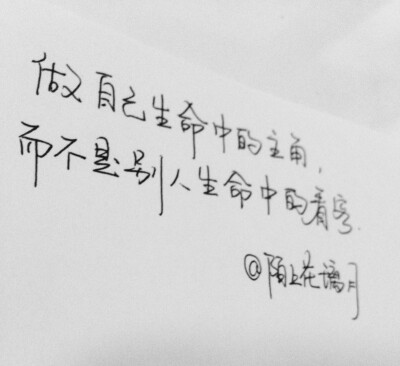 做自己生命中的主角,
而不是别人生命中的看客.
@陌上花璃月